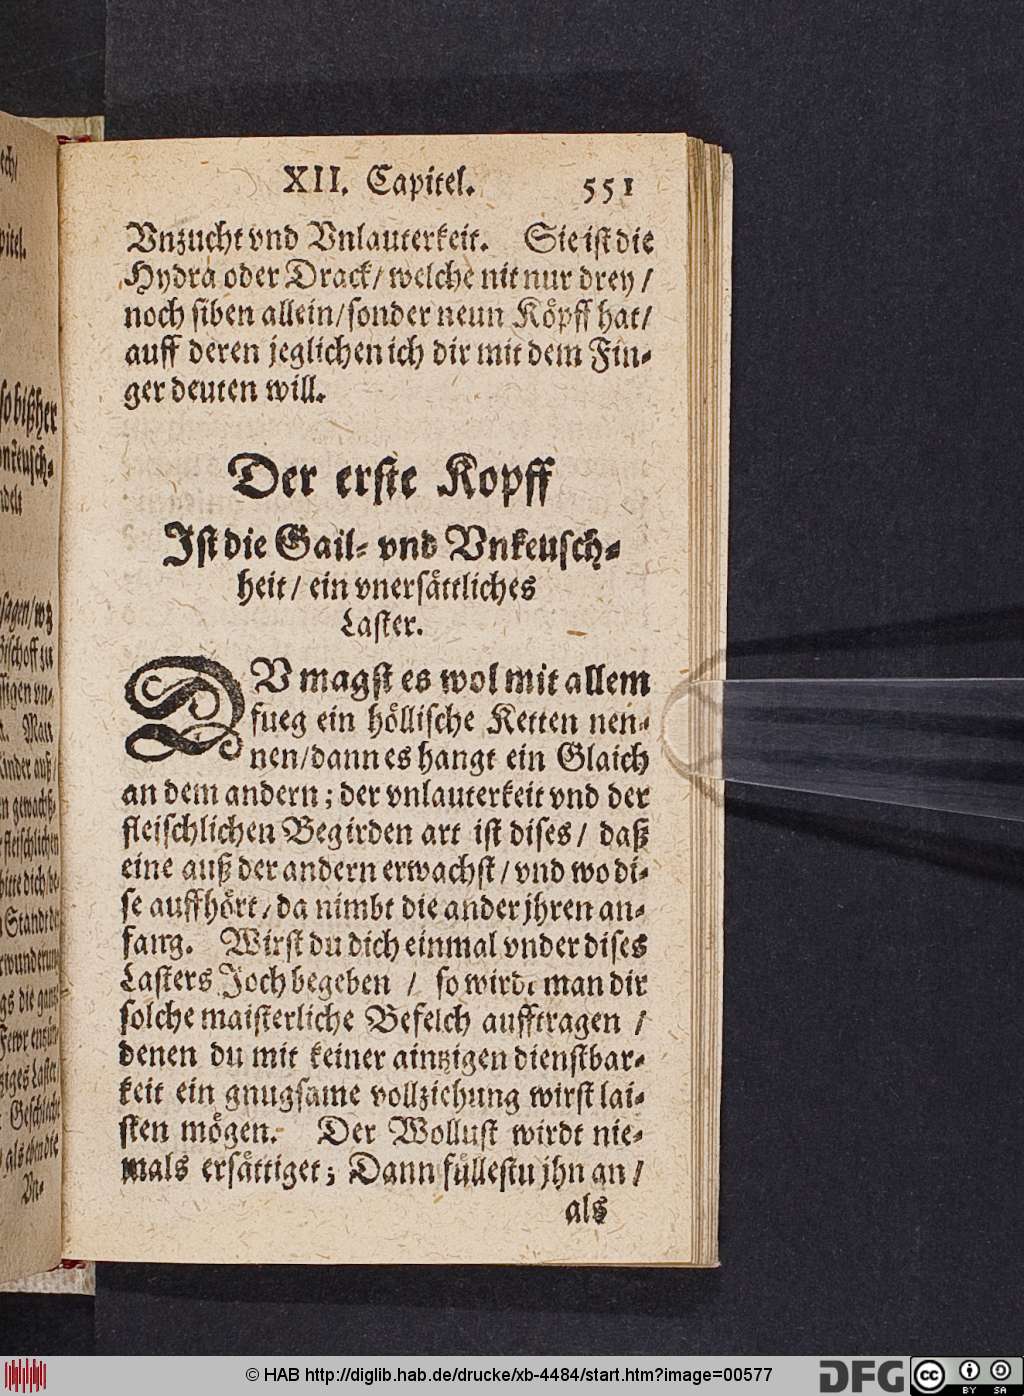 XII. Capitel. 551
Vnzucht vnd Vnlauterkeit. Sie ist die
Hydra oder Drack/ welche nit nur drey/
noch siben allein/ sonder neun Köpff hat/
auff deren jeglichen ich dir mit dem Fin-
ger deuten will.
Der erste Kopff
Ist die Gail- vnd Vnkeusch-
heit/ ein vnersättliches
Laster.
DV magst es wol mit allem
fueg ein höllische Ketten nen-
nen/ dann es hangt ein Glaich
an dem andern; der vnlauterkeit vnd der
fleischlichen Begirden art ist dises/ daß
eine auß der andern erwachst/ vnd wo di-
se auffhört/ da nimbt die ander jhren an-
fang. Wirst du dich einmal vnder dises
Lasters Joch begeben / so wirdt man dir
solche maisterliche Befelch aufftragen /
denen du mit keiner aintzigen dienstbar-
keit ein gnugsame vollziehung wirst lai-
sten mögen. Der Wollust wirdt nie-
mals ersättiget; Dann füllestu jhn an /
als
so bißher
sagen/ wz
Bischoff zu
ssigen vn-
Man
Kinder auß/
fleischlichen
bitte dich be-
Standt der
gs die gantz
Geschlecht
als eben die
Vn-
© HAB http://diglib.hab.de/drucke/xb-4484/start.htm?image=00577
DFG
cc BY SA